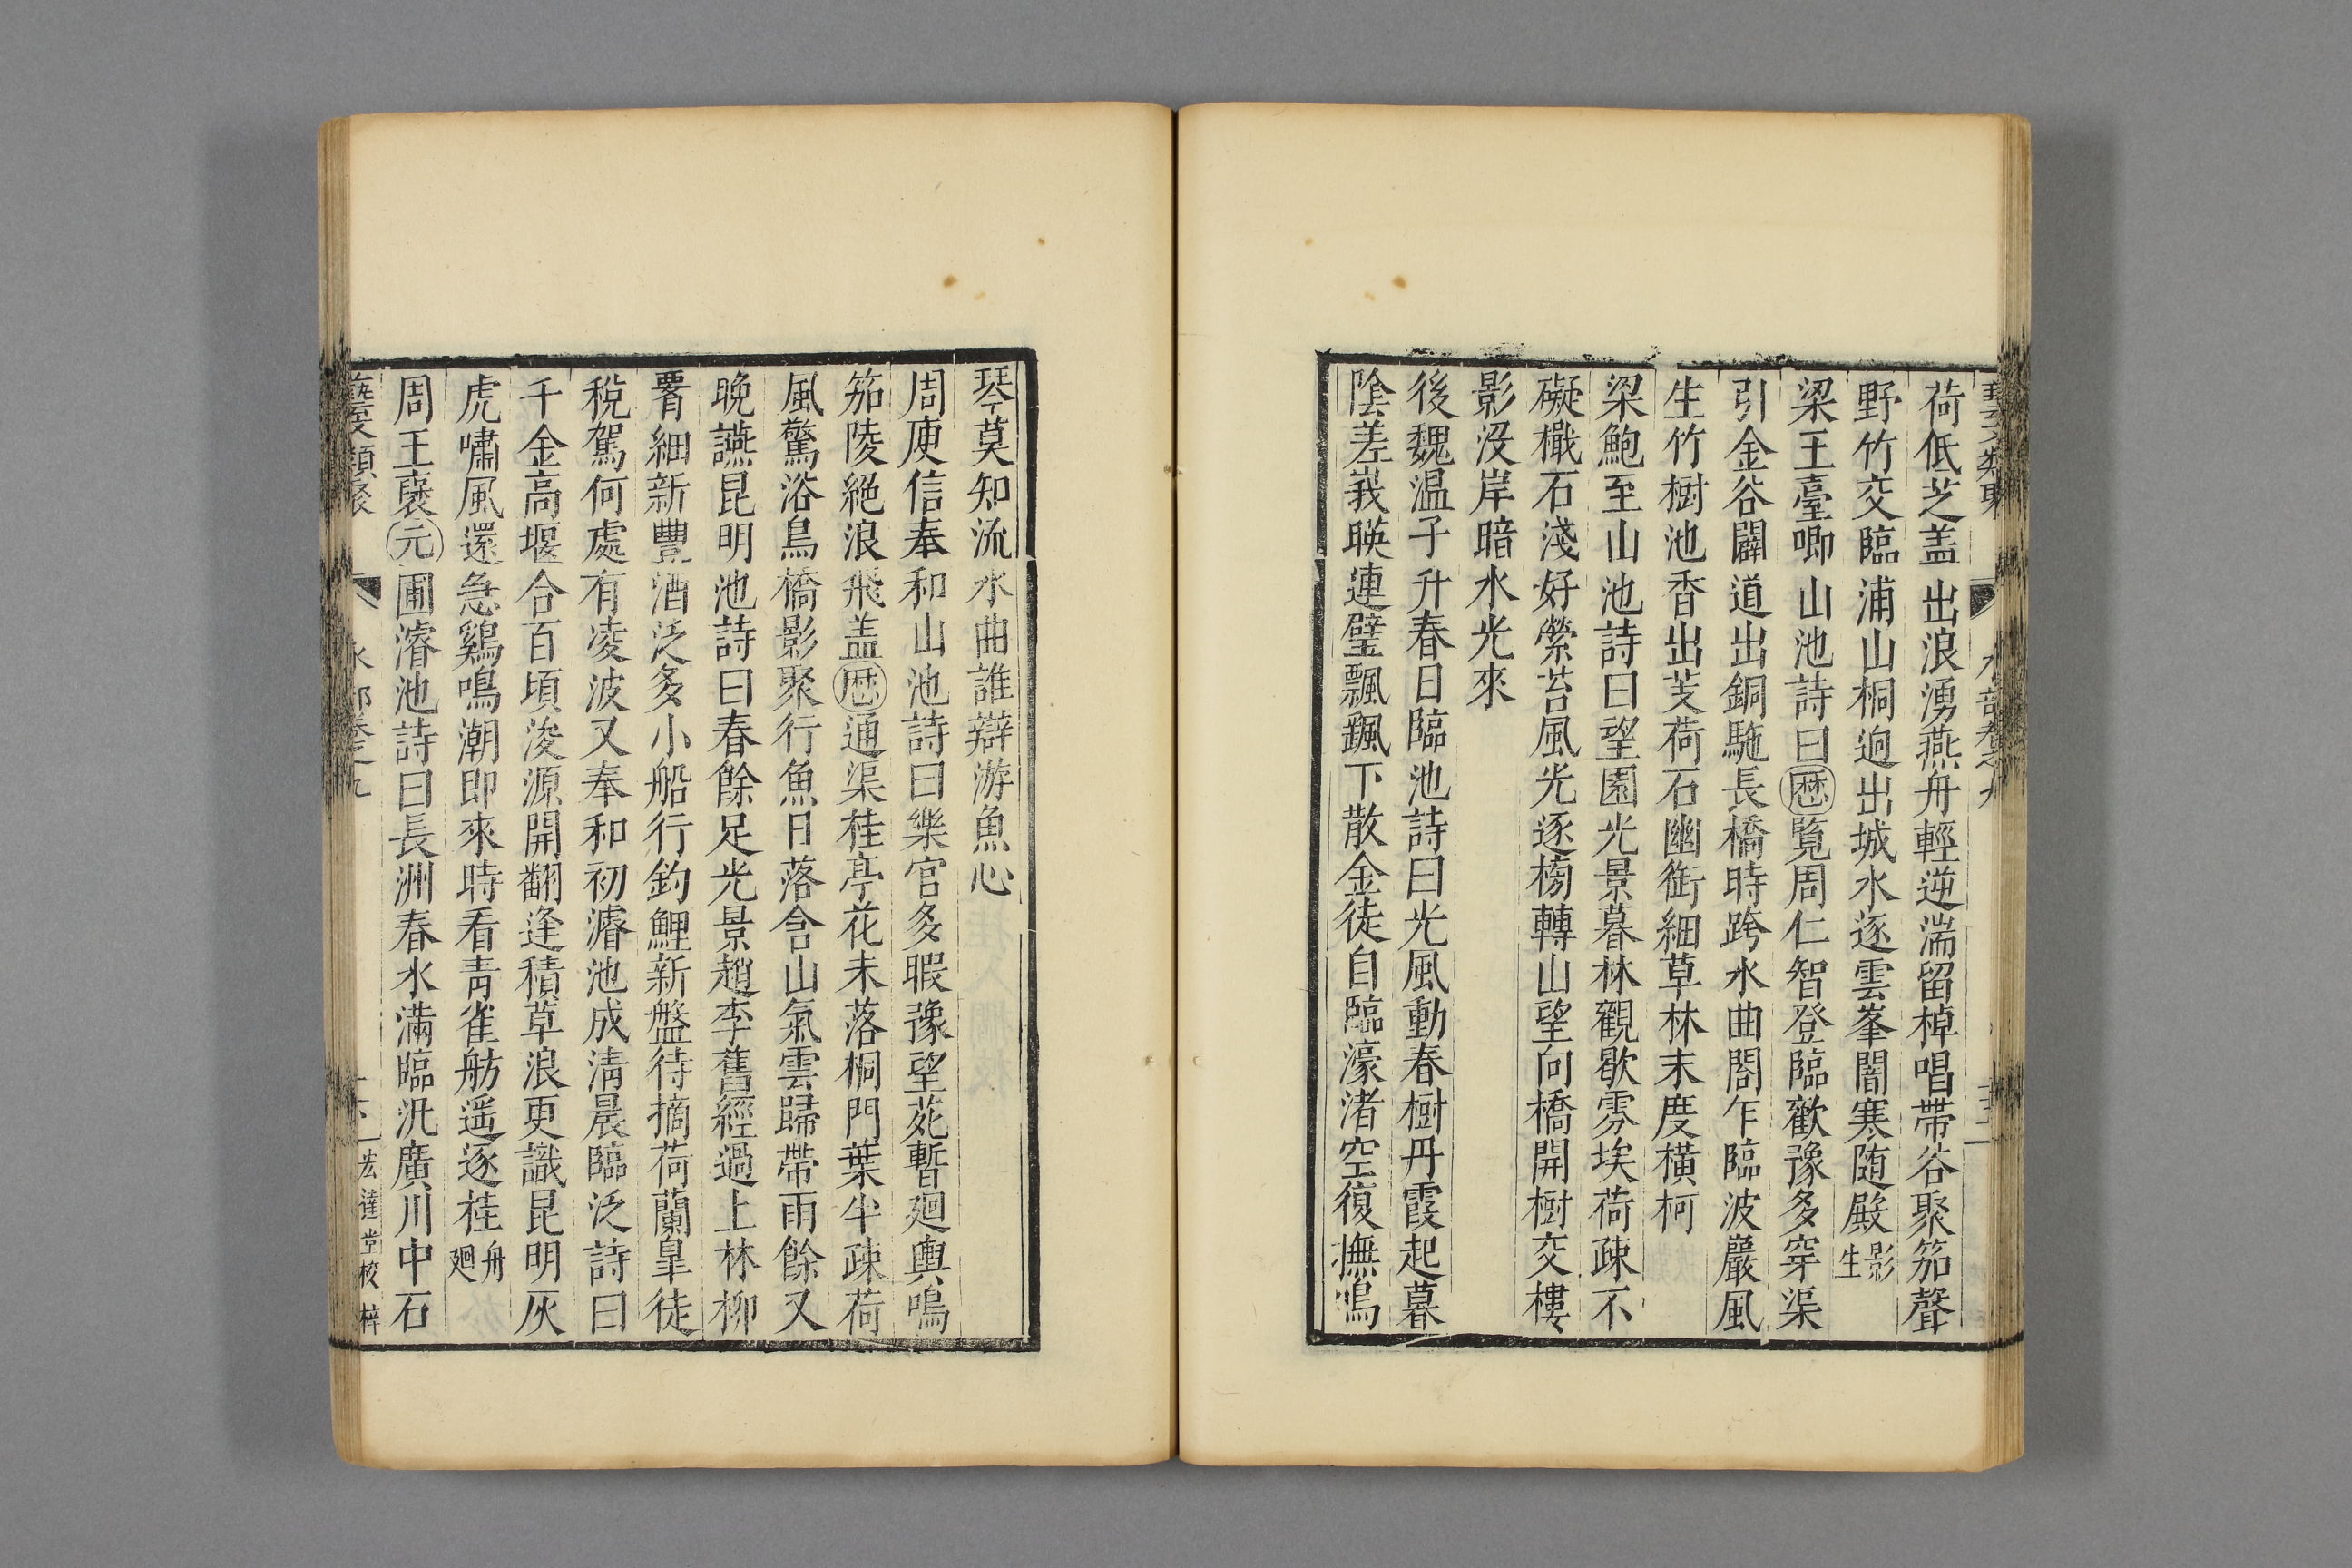 荷低芝盖出浪湧燕舟輕逆湍留棹唱帶谷聚笳聲
野竹交臨浦山桐逈出城水逐雲峯闇寒随殿影生
梁王臺卿山池詩曰歴覽周仁智登臨歡豫多穿渠
引金谷闢道出銅駞長橋時跨水曲閣乍臨波巖風
生竹樹池香出芰荷石幽銜細草林末度横柯
梁鮑至山池詩曰望園光景暮林觀歇雰埃荷疎不
礙檝石淺好縈苔風光逐榜轉山望向橋開樹交樓
影没岸暗水光來
後魏温子升春日臨池詩曰光風動春樹丹霞起暮
陰差峩暎連璧飄颻下散金徒自臨濠渚空復撫鳴
琴莫知流水曲誰辯游魚心
周庾信奉和山池詩曰樂官多暇豫望苑暫廻輿鳴
笳陵絕浪飛盖歴通渠桂亭花未落桐門葉半疎荷
風驚浴鳥橋影聚行魚日落含山氣雲歸帶雨餘又
晚讌昆明池詩曰春餘足光景趙李舊經過上林柳
署細新豐酒泛多小船行釣鯉新盤待摘荷蘭臯徒
稅駕何處有凌波又奉和初濬池成清晨臨泛詩曰
千金高堰合百頃浚源開翻逢積草浪更識昆明灰
虎嘯風還急鷄鳴潮即來時看青雀舫遥逐桂舟廻
周王褒元圃濬池詩曰長洲春水滿臨汎廣川中石
宏達堂校梓